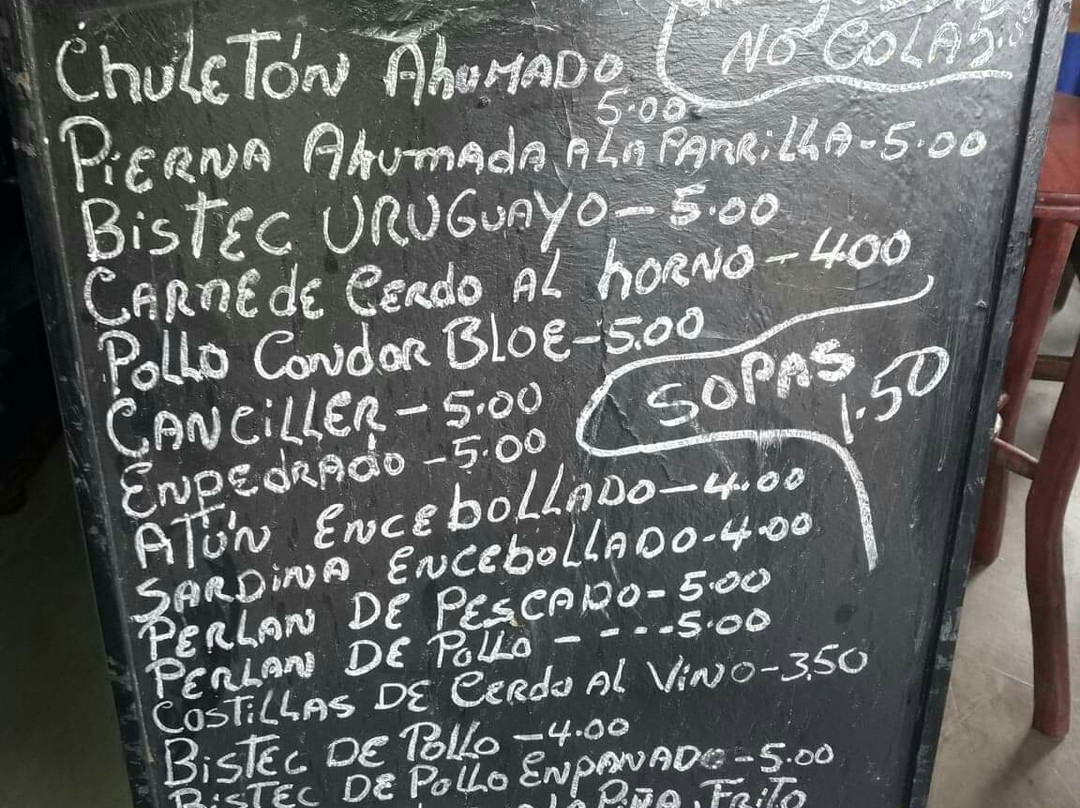 NO COLA 5.
CHULETÓN AHUMADO
5.00
PIERNA AHUMADA A LA PARRILLA-5.00
BISTEC URUGUAYO-5.00
CARNE de CERdO AL hORNO-400
POLLO CONdOR BLOE-5.00
SOPAS
1.50
CANCILLER-5.00
ENPEdRAdO-5.00
ATÚN ENCEbOLLADO-4.00
SARDINA ENCEbOLLADO-4.00
PERLAN DE PESCADO-5.00
PERLAN DE POLLO ----5.00
COSTILLAS DE CERdO AL VINO-3.50
BISTEC DE POLLO-4.00
BISTEC DE POLLO ENPANADO-5.00
PIÑA, FRITO